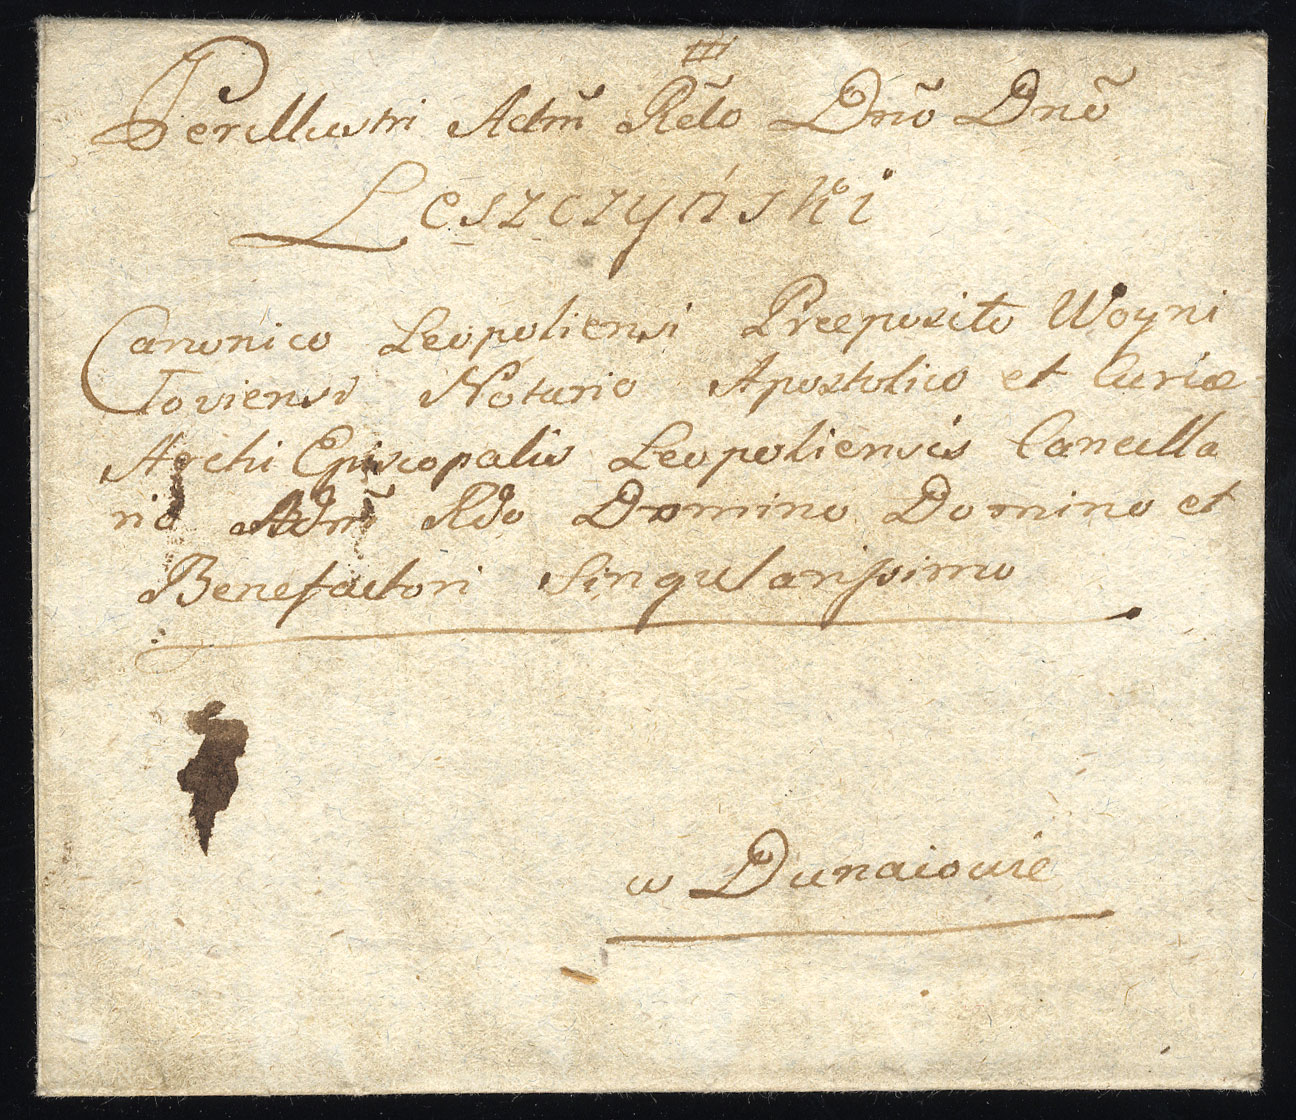 Perillustri Adm̃ Rẽdo Dnõ Dnõ
Leszczyński
Canonico Leopoliensi Præposito Woyni
Toviensi Notario Apostolico et Curiæ
Archi Episcopalis Leopoliensis Cancella
rio Adm̃ Rdo Domino Domino et
Benefactori Singularissimo
w Dunaiowie